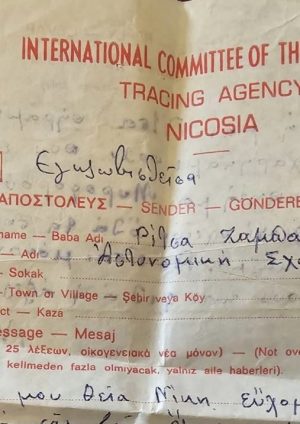 INTERNATIONAL COMMITTEE OF TH
TRACING AGENCY
NICOSIA
Εγκλωβισθείσα
ΑΠΟΣΤΟΛΕΥΣ — SENDER — GÖNDERE
name — Baba Adı Ρίτσα
— Adı Αστυνομική Σχ
— Sokak
Town or Village — Şehir veya Köy
ct — Kaza
essage — Mesaj
25 λέξεων, οἰκογενειακὰ νέα μόνον) — (Not ove
kelimeden fazla olmıyacak, yalnız aile haberleri).
μου θεία Νίκη εὔχομ